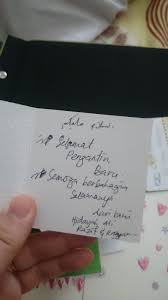 Selamat
Pengantin
Baru
Semoga berbahagia
Selamanya
dari kami
Hidayah